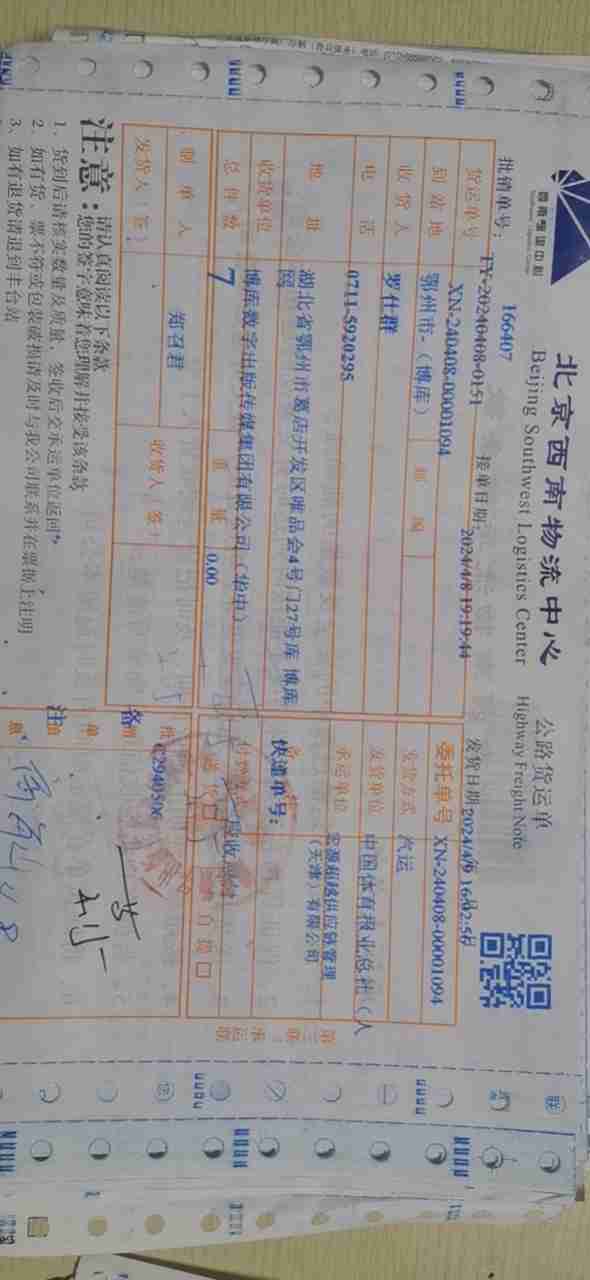 西南物流中心
北京西南物流中心
Beijing Southwest Logistics Center
公路货运单
Highway Freight Note
批销单号: 166407
接单日期: 2024/4/8 19:19:44
发货日期
货运单号 TY-20240408-0151
XN-240408-00001094
委托单号 XN-240408-00001094
到站地 鄂州市-（博库）
发货方式 汽运
收货人 罗仕群
发货单位 中国体育报业总社（人
电话 0711-5920295
承运单位 宏源超越供应链管理
（天津）有限公司
地址 湖北省鄂州市葛店开发区唯品会4号门27号库 博库
快递单号:
收货单位 博库数字出版传媒集团有限公司（华中）
总件数 7
重量 0.00
自提口
制单人 郑召君
收货人（签）
发货人（签）
备注
第三联：承运联
注意:
请认真阅读以下条款
您的签字意味着您理解并接受该条款
1、货到后请核实数量及质量，签收后交承运单位返回。
2、如有货、票不符或包装破损请及时与我公司联系并在票据上注明
3、如有退货请退到丰台站